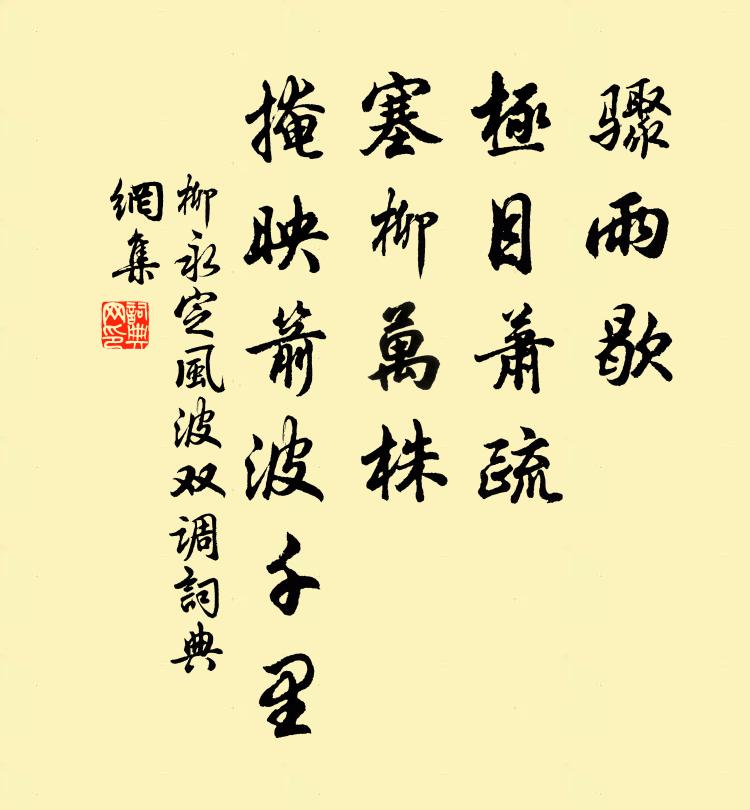 骤雨歇
極目蕭疏
塞柳萬株
掩映箭波千里
柳永定風波双调詞典
網集
詞典
网印